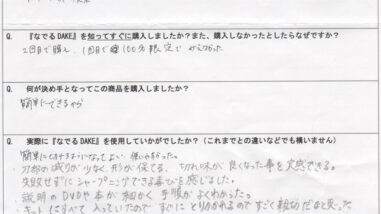 Q. 『なでるDAKE』を知ってすぐに購入しましたか？また、購入しなかったとしたらなぜですか？
2回目で購入。1回目で 100名限定で
Q. 何が決め手となってこの商品を購入しましたか？
簡単にできるから
Q. 実際に『なでるDAKE』を使用していかがでしたか？（これまでとの違いなどでも構いません）
簡単にできるようになってよい 使いやすかった。
刃物の減りが少なく、形が保てる、切れ味が良くなった事を実感できる。
失敗せずにシャープニングできる喜びを感じました。
説明のDVDや本が細かく手順がよくわかった。
キットにすべて入っていたので すぐにとりかかれるのですごく親切だなと思った